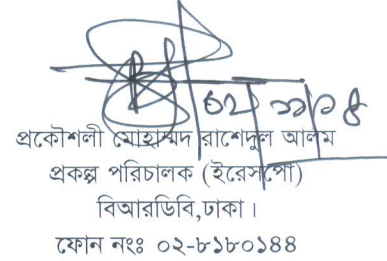 প্রকৌশলী মোহাম্মদ রাশেদুল আলম
প্রকল্প পরিচালক (ইরেসপো)
বিআরডিবি,ঢাকা।
ফোন নংঃ ০২-৮১৮০১৪৪